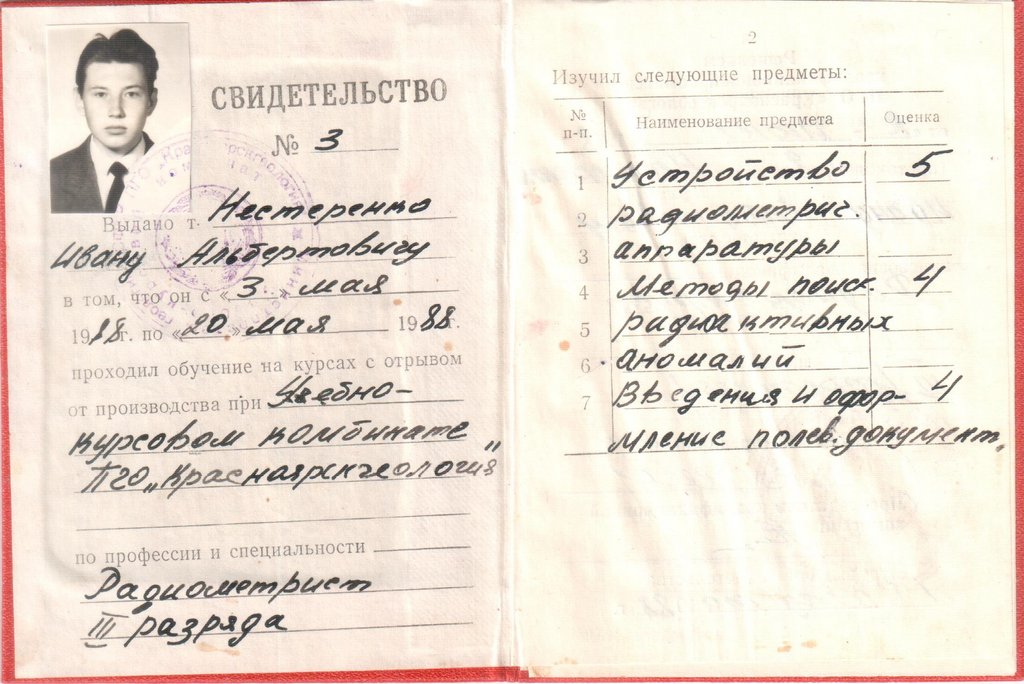 СВИДЕТЕЛЬСТВО
№ 3
Выдано т. Нестеренко
Ивану Альбертовичу
в том, что он с «3» мая
1988г. по «20» мая 1988г.
проходил обучение на курсах с отрывом
от производства при Учебно-
курсовом комбинате
ПГО „Красноярскгеология"
по профессии и специальности
Радиометрист
III разряда
2
Изучил следующие предметы:
№ п-п. Наименование предмета Оценка
1 Устройство 5
2 радиометрич.
3 аппаратуры
4 Методы поиск. 4
5 радиоактивных
6 аномалий
7 Введения и офор- 4
мление полев. документ.